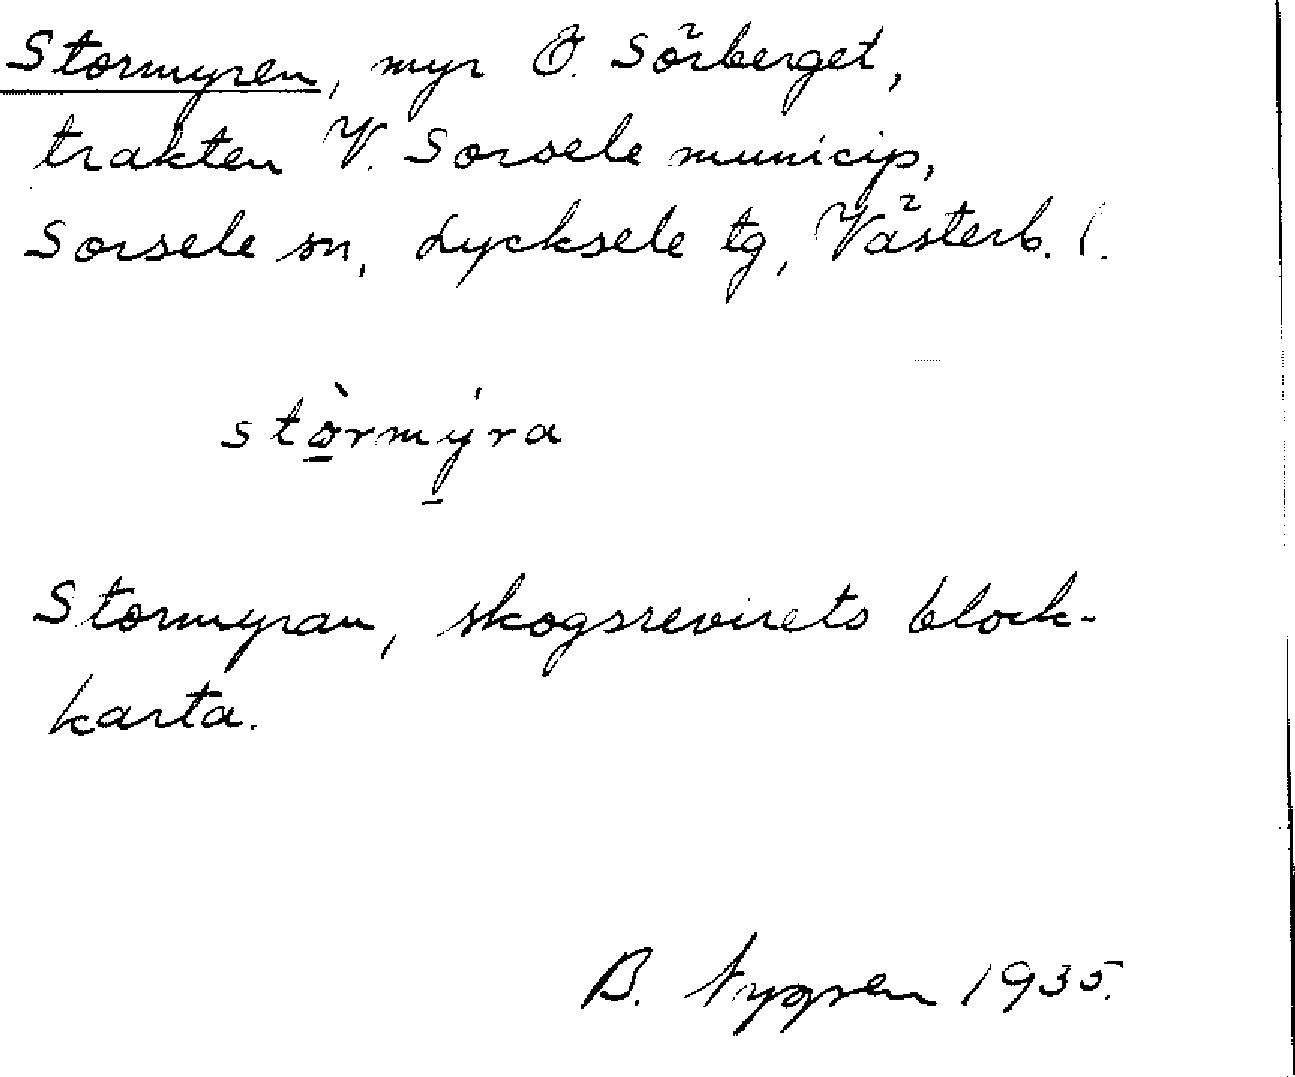 Stormyren, myr Ö. Sörberget,
trakten V. Sorsele municip,
Sorsele sn, Lycksele tg, Västerb. l.
stò̱rmý̱ra
Stormyran, skogsrevirets block-
karta.
B. Nygren 1935.